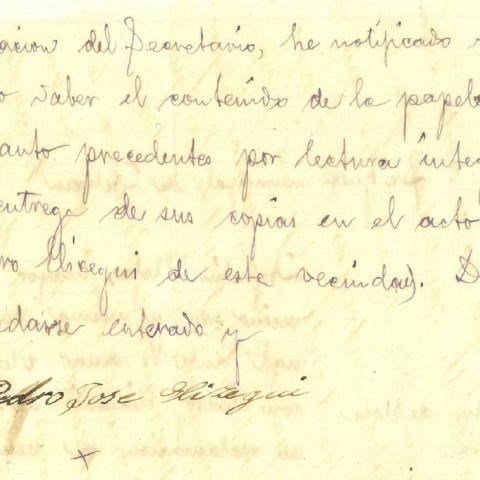 acion del Secretario, he notificado
o saber el contenido de la papel
anto precedentes por lectura integ
entrega de sus copias en el acto
ro Elicegui de este vecindad. D
edarse enterado y
Pedro Jose Elizegui